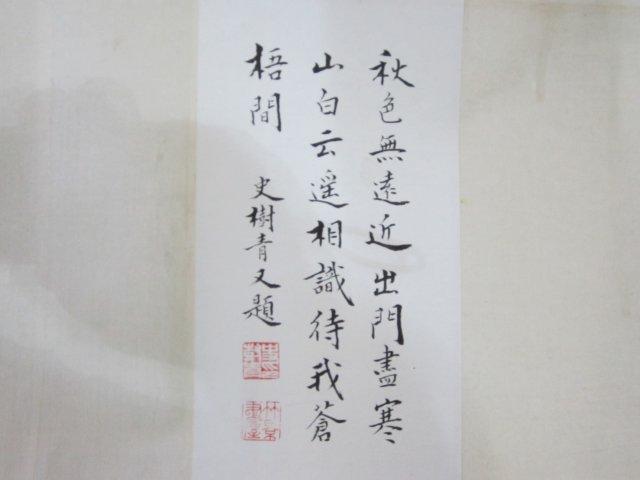 秋色無遠近出門盡寒
山白云遥相識待我蒼
梧間
史樹青又題